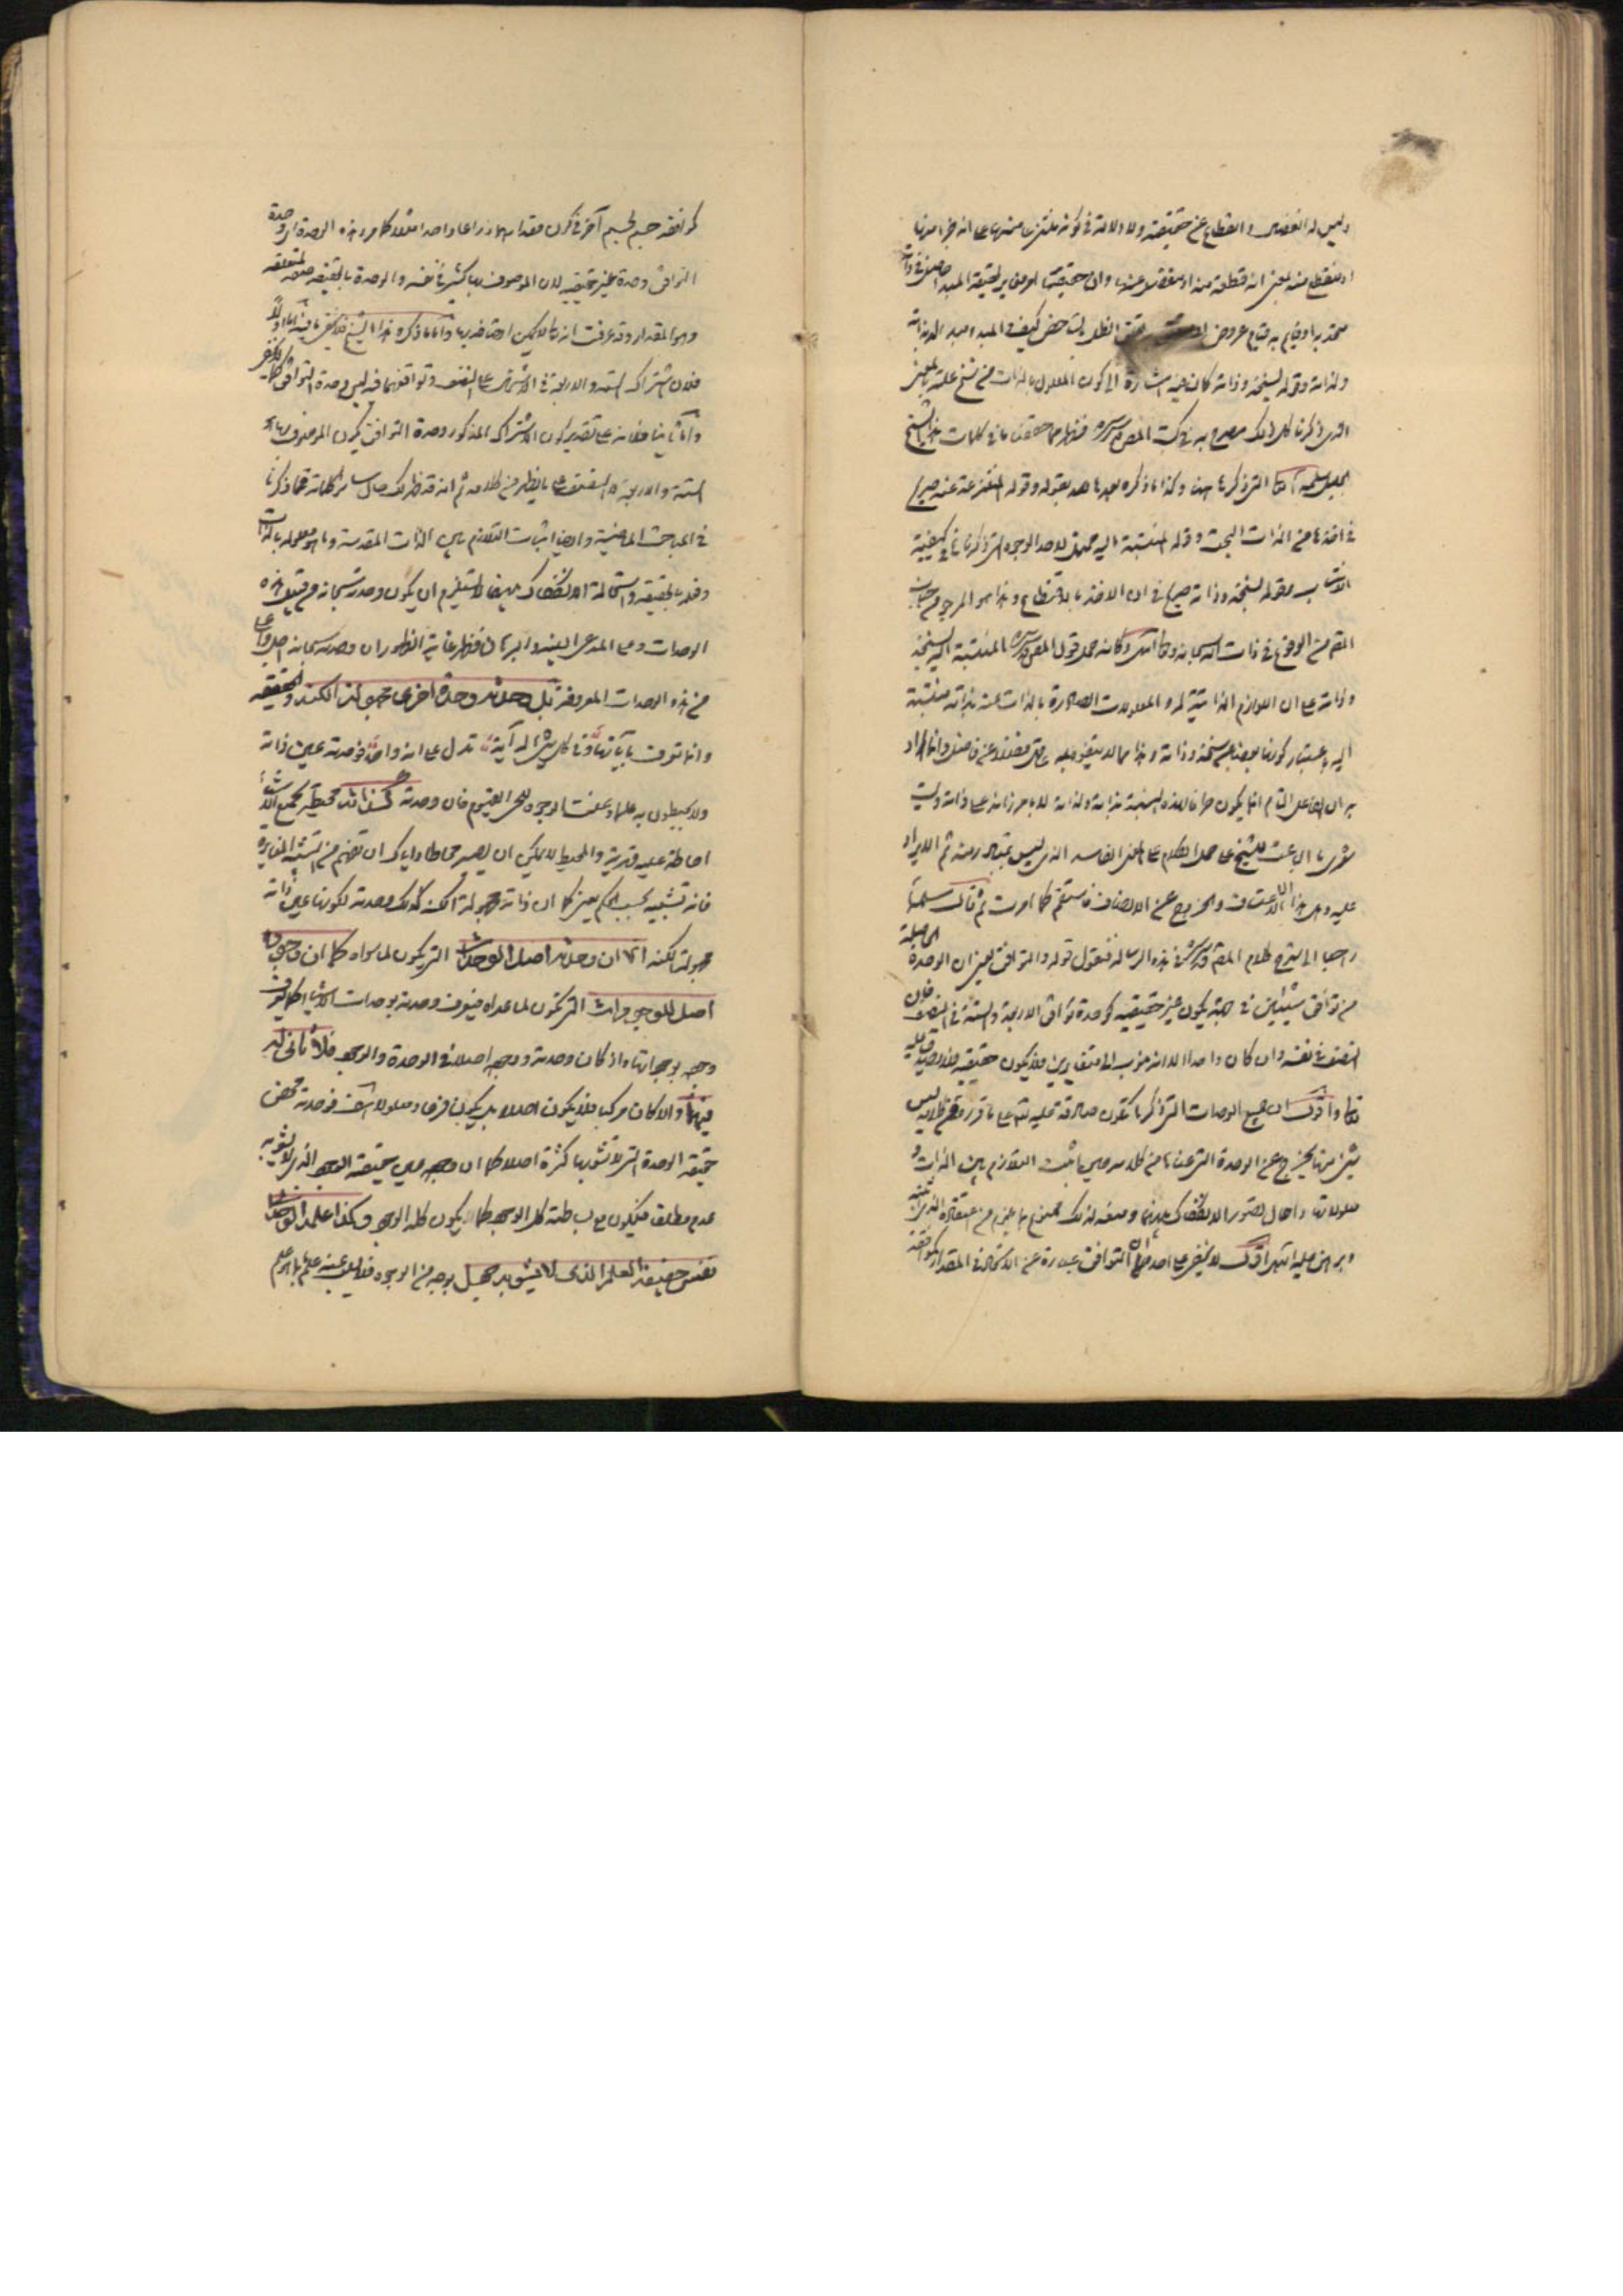 وليس له انفصال وانقطاع عن حقيقته ولا دلالة في كونه منتزعا منها على انه جزء منها
او منقطع منه بمعنى انه قطعة منه او منفصل عنها وان حقيقتها
متحد به او قايم به قيام عروض تحت الظل بالشاخص كيف والمبدء مبدء لذاته
ولذاته وقوله بسنخه وذاته كان فيه اشارة الى كون المعلول بالذات من سنخ علته بالمعنى
الذي ذكرنا كل ذلك مصرح به في كتب المص قدس سره فظهر مما حققنا ما في كلمات هذا الشيخ
الجليل التي ذكرها هنا وكذا ما ذكره بعدها بقوله وقوله المنتزعة عنه صريح
في اخذها من الذات البحت وقوله المنتسبة اليه محتمل لاحد الوجوه التي ذكرنا في كيفية
الانتساب وقوله بسنخه وذاته صريح في ان الاخذ بالاقتطاع وهذا هو المرجو من جناب
المص من الوقوع في ذات الله سبحانه وكانه حمل قول المص قدس سره المنتسبة اليه بسنخه
وذاته على ان اللوازم الذاتية له والمعلولات الصادرة بالذات عنه بذاته منتسبة
اليه باعتبار كونها بعضا من سنخه وذاته وهذا مما لا يتفوه به عاقل فضلا عن فاضل وانما اراد
به ان الفاعل التام انما يكون بذاته ولذاته لا بامر زائد على ذاته وليت
شعري ما الباعث للشيخ على حمل الكلام على المعنى الفاسد الذي ليس بمتبادر منه ثم الايراد
عليه وهل هذا الا الاعتساف والخروج عن الانصاف فاستقم كما امرت ثم قال سلمه الله
راجعا الى شرح كلام المص قدس سره في هذه الرسالة فنقول قوله والتوافق يعني ان الوحدة الحاصلة
من توافق شيئين في جهة يكون غير حقيقية كوحدة توافق الاربعة والستة في النصف فان
النصف في نفسه وان كان واحدا الا انه منسوب الى متغايرين فلا يكون حقيقية
اقول ان جميع الوحدات التي ذكرنا تكون صادقة عليه تعالى على ما قررتم فظلاله ليس
شيئا منها يخرج عن الوحدة التي عن كلامه حين اثبت التلازم بين الذات و
معلولاتها واحال تصور الانفكاك بينهما
وبراهن عليه انتهى اقول لا يخفى على احد ان التوافق عبارة عن الاتحاد في المقدار كموافقة
كموافقة جسم لجسم آخر في كون مقدارهما ذراعا واحدا مثلا كما مر وهذه الوحدة اي وحدة
التوافق وحدة غير حقيقية لان الموصوف بها كثير في نفسه والوحدة بالحقيقة صفة لمتعلقه
وهو المقدار وقد عرفت انه تعالى لا يمكن اتصافه بها واما ما ذكره هذا الشيخ فلا يخفى ما فيه اما اولا
فلان اشتراك الستة والاربعة في الاشتمال على النصف وتوافقهما فيه ليس وحدة التوافق كما لا يخفى
واما ثانيا فلانه على تقدير كون الاشتراك المذكور وحدة التوافق يكون الموصوف بها هو
الستة والاربعة لا النصف على ما يظهر من كلامه ثم انه قد ظهر لك حال ساير كلماته مما ذكرنا
في المباحث الماضية وايضا اثبات التلازم بين الذات المقدسة وما هو معلوله بالذات
وفعله بالحقيقة واستحالة الانفكاك بينهما لا يستلزم ان يكون وحدته سبحانه من قبيل هذه
الوحدات وعلى المدعي البينة والبرهان فظهر غاية الظهور ان وحدته سبحانه اجل واعلى
من هذه الوحدات المعروفة بل وحدته وحدة اخرى مجهولة الكنه والحقيقة
وانما توقف بآياتها وفي كل شيء له آية تدل على انه واحد فوحدته عين ذاته
ولا يحيطون به علما وعنت الوجوه للحي القيوم فان وحدته كذاته محيطة بجميع الاشياء
احاطة عليه قهرية والمحيط لا يمكن ان يصير محاطا واياك ان تفهم من التشبيه المغايرة
فانه تشبيه بحسب الحكم يعني كما ان ذاته مجهولة الكنه كذلك وحدته لكونها عين ذاته
مجهولة الكنه كما ان وحدته اصل الوحدات التي يكون لما سواه كما ان وجوده
اصل للوجودات التي تكون لما عداه فيعرف وحدته بوحدات الاشياء كما يعرف
وجوده بوجوداتها واذ كان وحدته ووجوده اصلا في الوحدة والوجود فلا ثاني له
فيهما والا لكان مركبا فلا يكون اصلا بل يكون فرعا ومعلولا لآخر فوحدته محض
حقيقة الوحدة التي لا تشوبها كثرة اصلا كما ان وجوده عين حقيقة الوجود الذي لا يشوبه
عدم مطلق فيكون مع بساطته كل الوجود كما يكون كله الوجود وكذا علمه الوحداني
نفس حقيقة العلم الذي لا يشوبه جهل بوجه من الوجوه